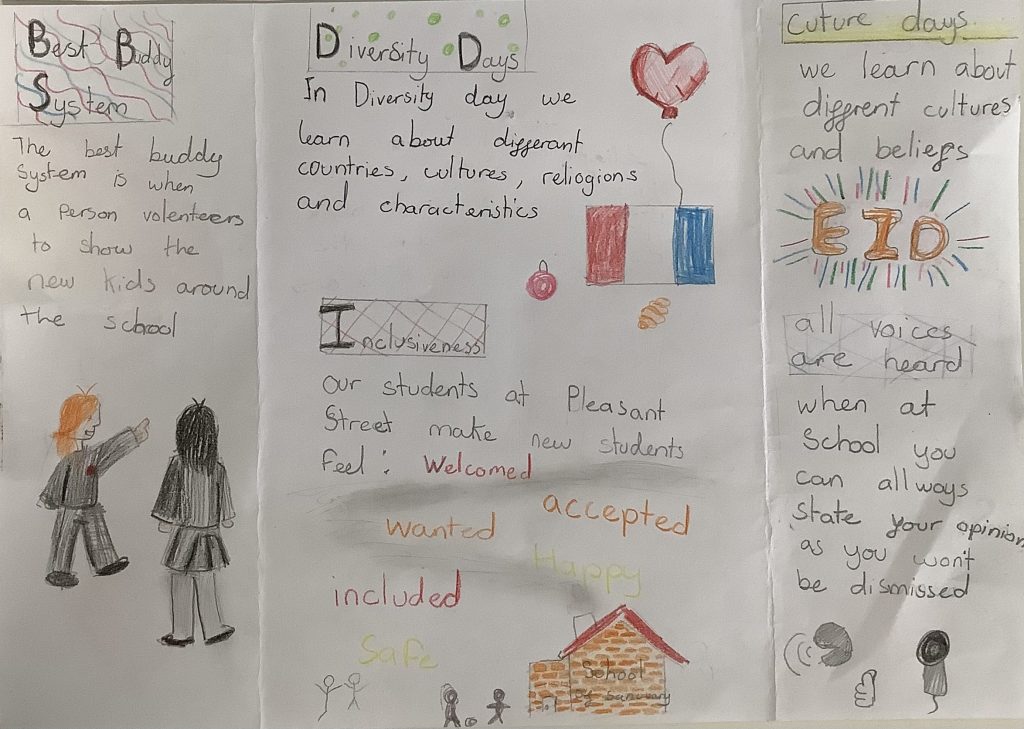 Best Buddy
System
The best buddy
system is when
a person volenteers
to show the
new kids around
the school
Diversity Days
In Diversity day we
learn about differant
countries, cultures, reliogions
and characteristics
Inclusiveness
Our students at Pleasant
Street make new students
feel: Welcomed
accepted
wanted
Happy
included
Safe
School
of sanctuary
Cuture days
we learn about
diffrent cultures
and beliefs
EID
all voices
are heard
when at
School you
can allways
state your opinion
as you won't
be dismissed